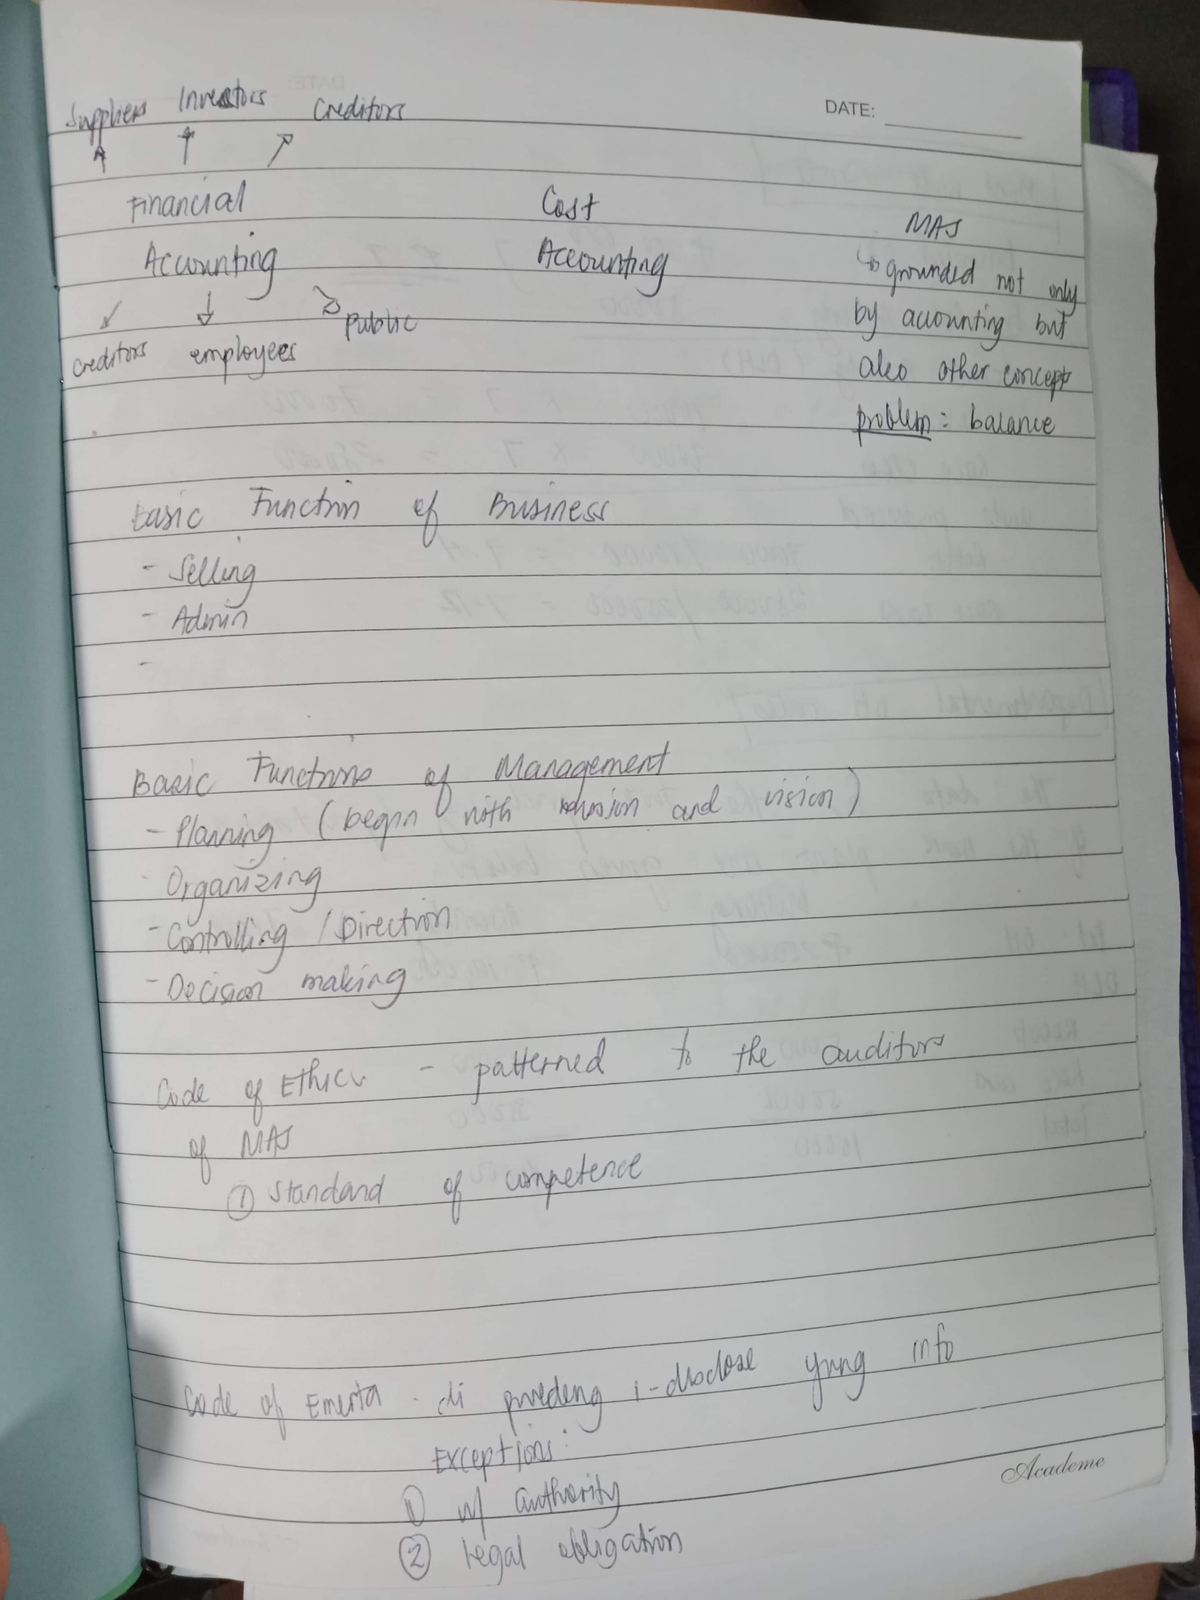 Suppliers Investors Creditors
DATE:
Financial
Accounting
creditors employees public
Cost
Accounting
MAS
↳ grounded not only
by accounting but
also other concept
problem: balance
Basic Function of Business
- Selling
- Admin
-
Basic Functions of Management
- Planning (begin with and vision)
- Organizing
- Controlling / Direction
- Decision making
Code of Ethics - patterned to the auditors
of MAS
① Standard of competence
Code of - di pwedeng i-disclose yung info
Exceptions:
① w/ authority
② legal obligation
Academe